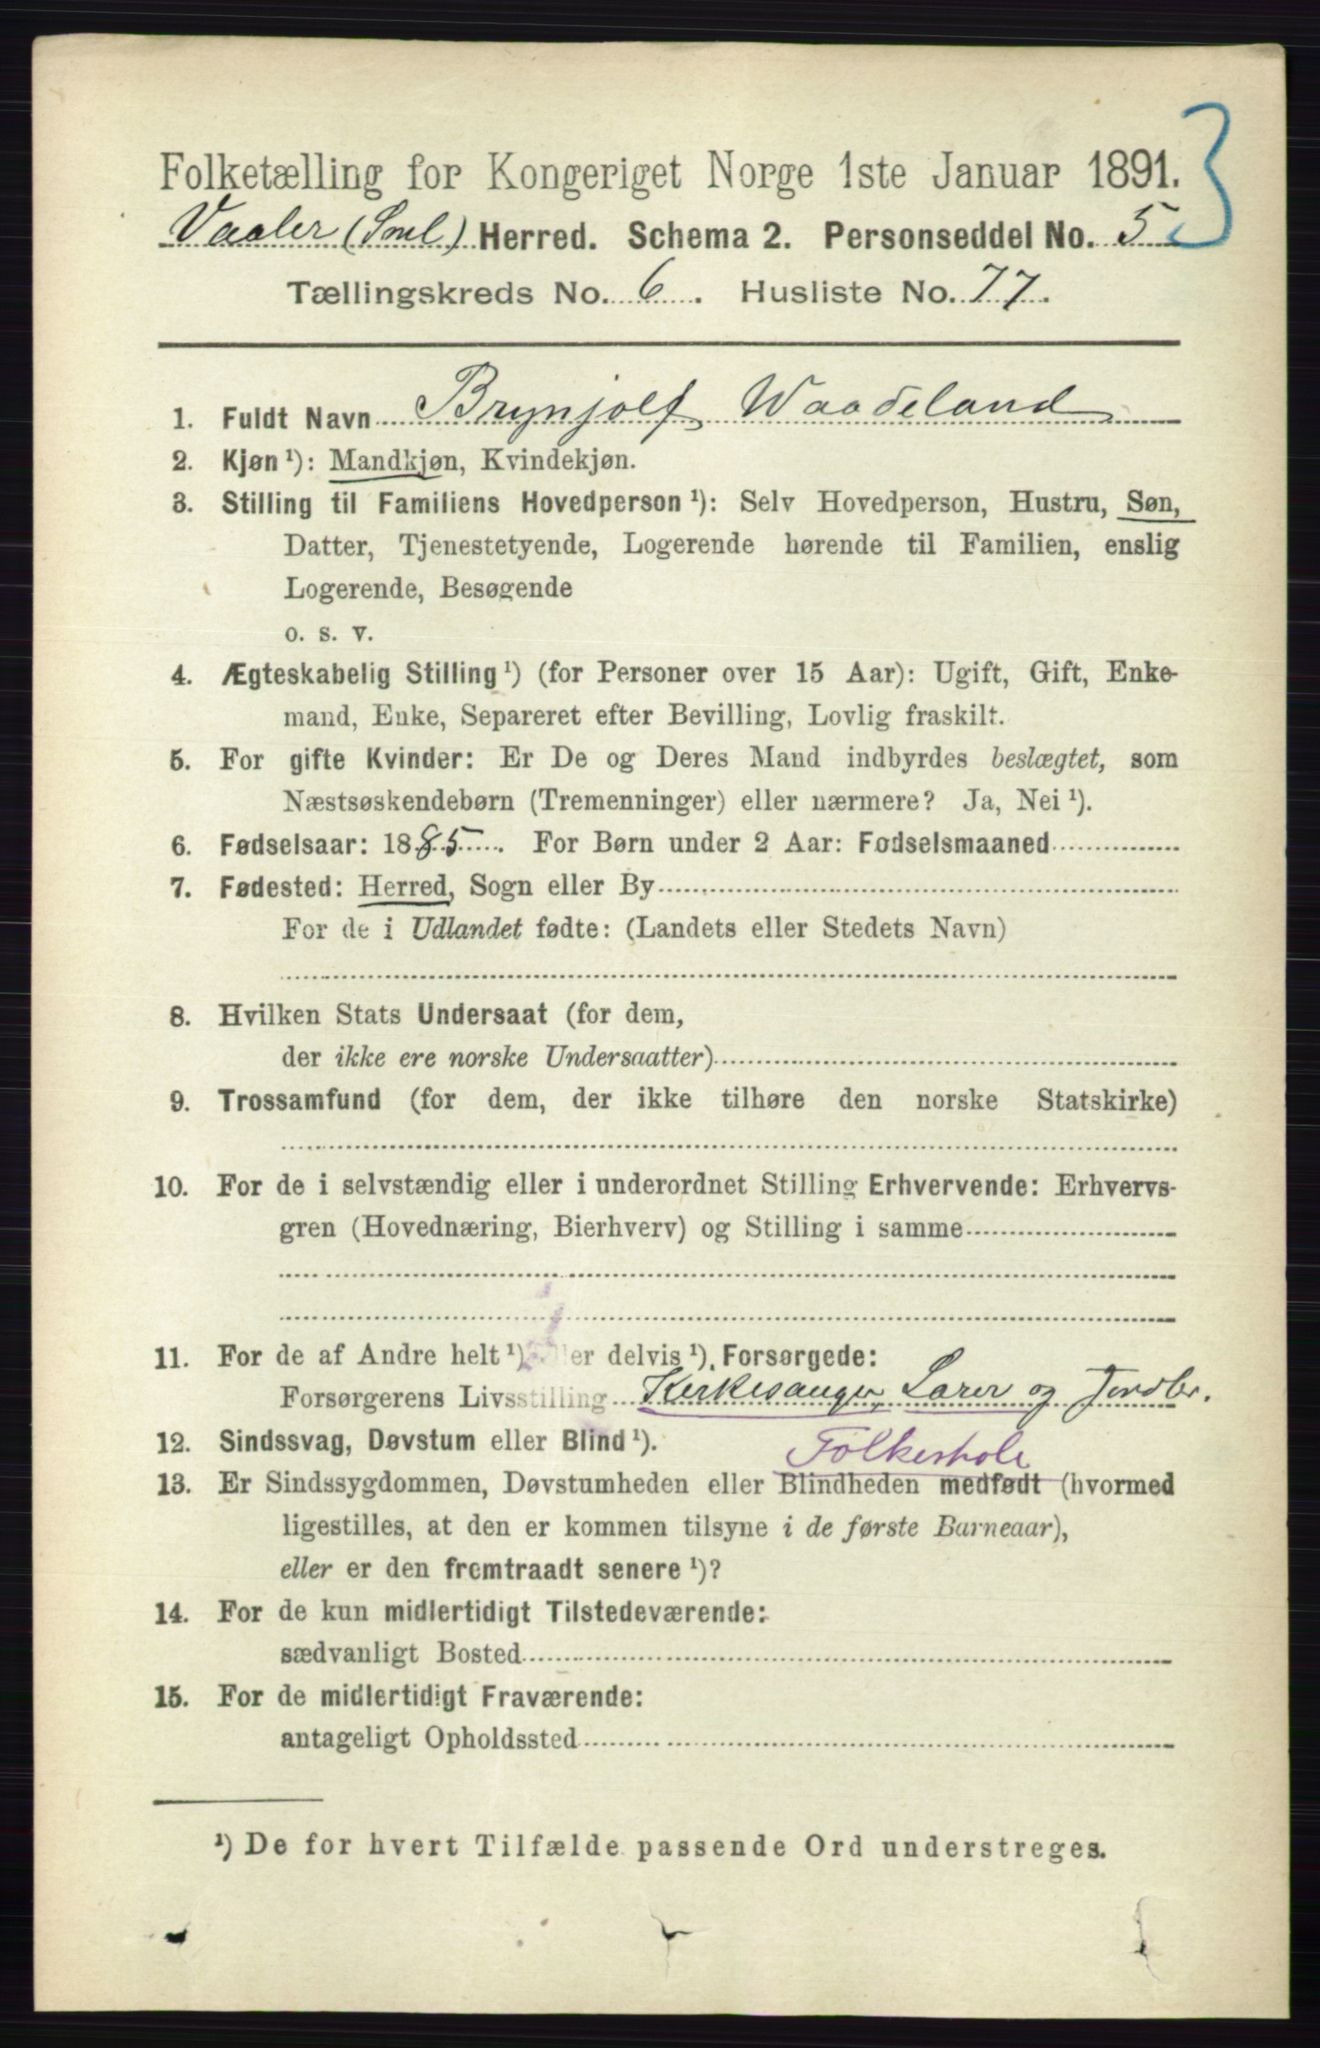 3
Folketælling for Kongeriget Norge 1ste Januar 1891.
Vaaler (Sml.) Herred. Schema 2. Personseddel No. 5
Tællingskreds No. 6. Husliste No. 77.
1. Fuldt Navn Brynjolf Waadeland
2. Kjøn ¹): Mandkjøn, Kvindekjøn.
3. Stilling til Familiens Hovedperson ¹): Selv Hovedperson, Hustru, Søn,
Datter, Tjenestetyende, Logerende hørende til Familien, enslig
Logerende, Besøgende
o. s. v.
4. Ægteskabelig Stilling ¹) (for Personer over 15 Aar): Ugift, Gift, Enke-
mand, Enke, Separeret efter Bevilling, Lovlig fraskilt.
5. For gifte Kvinder: Er De og Deres Mand indbyrdes beslægtet, som
Næstsøskendebørn (Tremenninger) eller nærmere? Ja, Nei ¹).
6. Fødselsaar: 1885. For Børn under 2 Aar: Fødselsmaaned
7. Fødested: Herred, Sogn eller By
For de i Udlandet fødte: (Landets eller Stedets Navn)
8. Hvilken Stats Undersaat (for dem,
der ikke ere norske Undersaatter)
9. Trossamfund (for dem, der ikke tilhøre den norske Statskirke)
10. For de i selvstændig eller i underordnet Stilling Erhvervende: Erhvervs-
gren (Hovednæring, Bierhverv) og Stilling i samme
11. For de af Andre helt ¹) eller delvis ¹), Forsørgede:
Forsørgerens Livsstilling Kirkesanger, Lærer og Jordbr.
12. Sindssvag, Døvstum eller Blind ¹). Folkeskole
13. Er Sindssygdommen, Døvstumheden eller Blindheden medfødt (hvormed
ligestilles, at den er kommen tilsyne i de første Barneaar),
eller er den fremtraadt senere ¹)?
14. For de kun midlertidigt Tilstedeværende:
sædvanligt Bosted
15. For de midlertidigt Fraværende:
antageligt Opholdssted
¹) De for hvert Tilfælde passende Ord understreges.